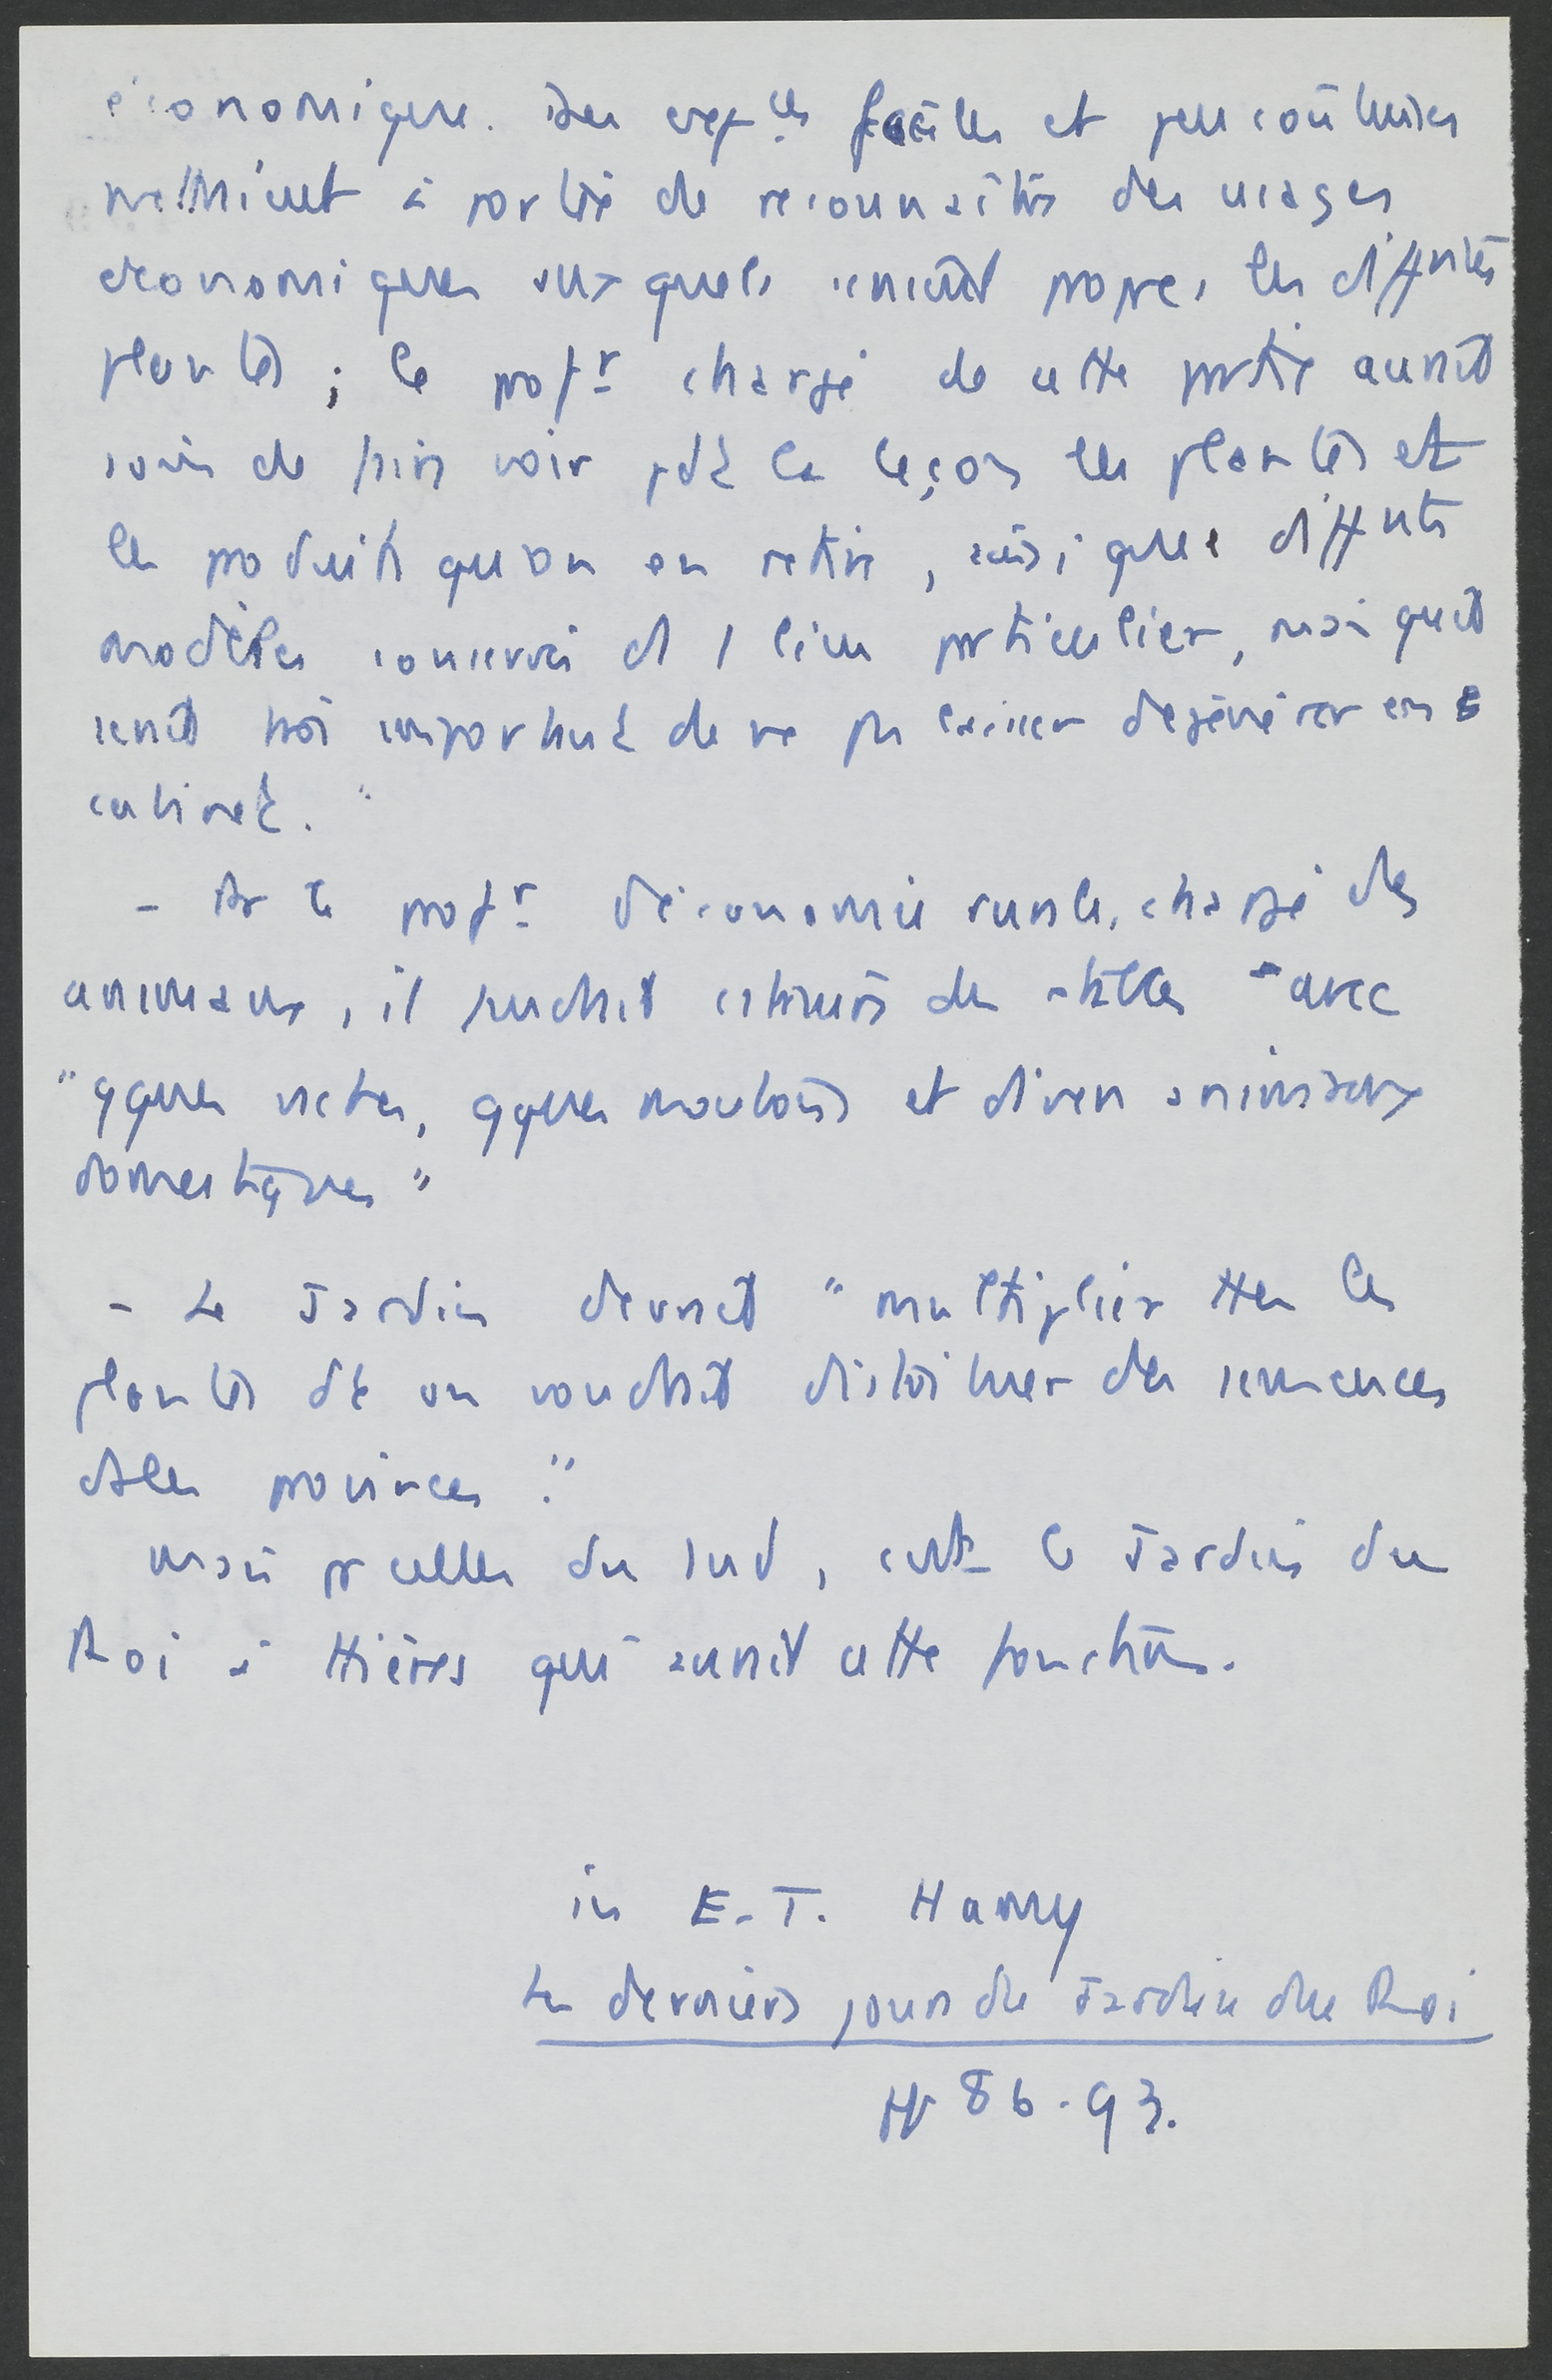 économique. Des expces faciles et peu coûteuses
mettraient à portée de reconnaître des usages
économiques auxquels seraient propres les diffntes
plantes ; le profr chargé de cette partie aurait
soin de faire voir pdt la leçon les plantes et
les produits qu'on en retire, ainsi que diffnts
modèles conservés ds 1 lieu particulier, mais qu'il
serait très important de ne pas laisser dégénérer en
cabinet."
- le profr d'économie rurale, chargé des
animaux, il faudrait des avec
"qques vaches, qques moutons et divers animaux
domestiques"
- Le Jardin devrait "multiplier ttes les
plantes dt on voudrait distribuer des semences
ds les provinces."
mais pr celles du sud, c'est le Jardin du
Roi à Hières qui aurait cette fonction.
in E.-T. Hamy
Les derniers jours du Jardin du Roi
pp 86-93.